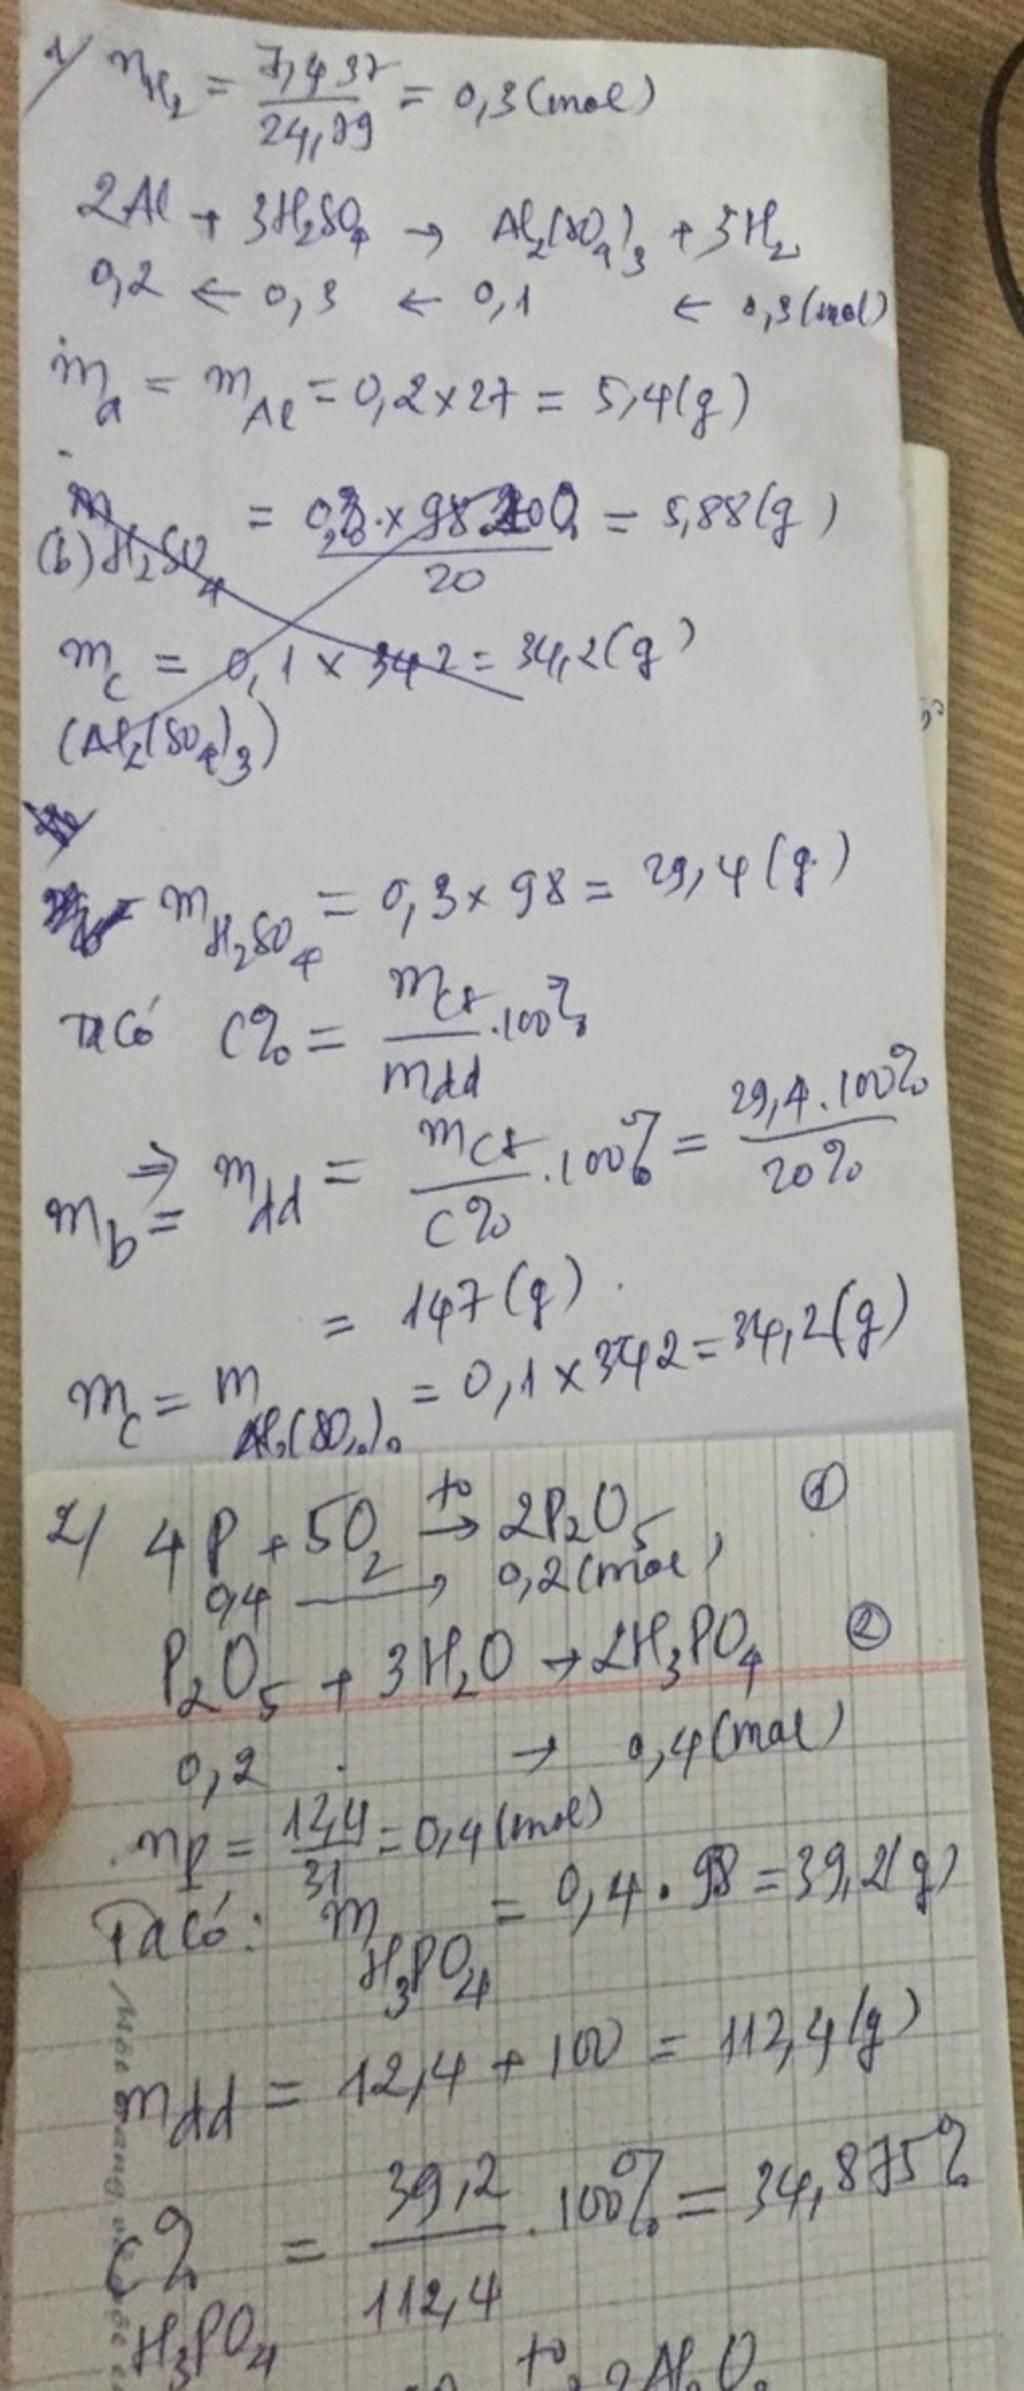 1/ nH₂ = 7,437/24,79 = 0,3 (mol)
2Al + 3H₂SO₄ → Al₂(SO₄)₃ + 3H₂
0,2 ← 0,3 ← 0,1 ← 0,3 (mol)
mₐ = m Al = 0,2 × 27 = 5,4 (g)
m (b) H₂SO₄ = 5,88 (g)
20
m_c = 0,1 × 342 = 34,2 (g)
(Al₂(SO₄)₃)
m H₂SO₄ = 0,3 × 98 = 29,4 (g)
Ta có C% = mct/mdd . 100%
⇒ mdd = mct/C% . 100% = 29,4 . 100%/20%
m_b =
= 147 (g)
m_c = m Al₂(SO₄)₃ = 0,1 × 342 = 34,2 (g)
2/ 4P + 5O₂ →(t°) 2P₂O₅ ①
0,4 → 0,2 (mol)
P₂O₅ + 3H₂O → 2H₃PO₄ ②
0,2 → 0,4 (mol)
nP = 12,4/31 = 0,4 (mol)
Ta có: m H₃PO₄ = 0,4 . 98 = 39,2 (g)
mdd = 12,4 + 100 = 112,4 (g)
C% H₃PO₄ = 39,2/112,4 . 100% = 34,875%
t° 2Al₂O₃